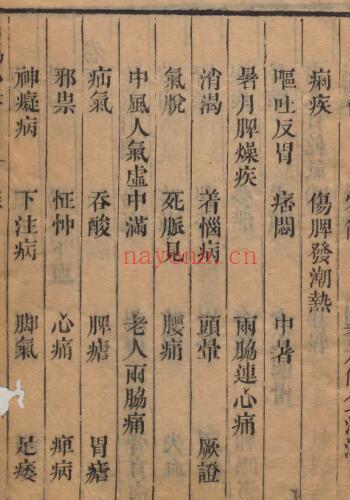 痢疾 傷脾發潮熱
嘔吐反胃 痞悶 中暑
暑月脾燥疾 兩脇連心痛
消渴 着惱病 頭暈 厥證
氣脫 死脈見 腰痛
中風人氣虛中滿 老人兩脇痛
疝氣 吞酸 脾瘧 胃瘧
邪祟 怔忡 心痛 痺病
神癡病 下注病 脚氣 足痿
nayona.cn